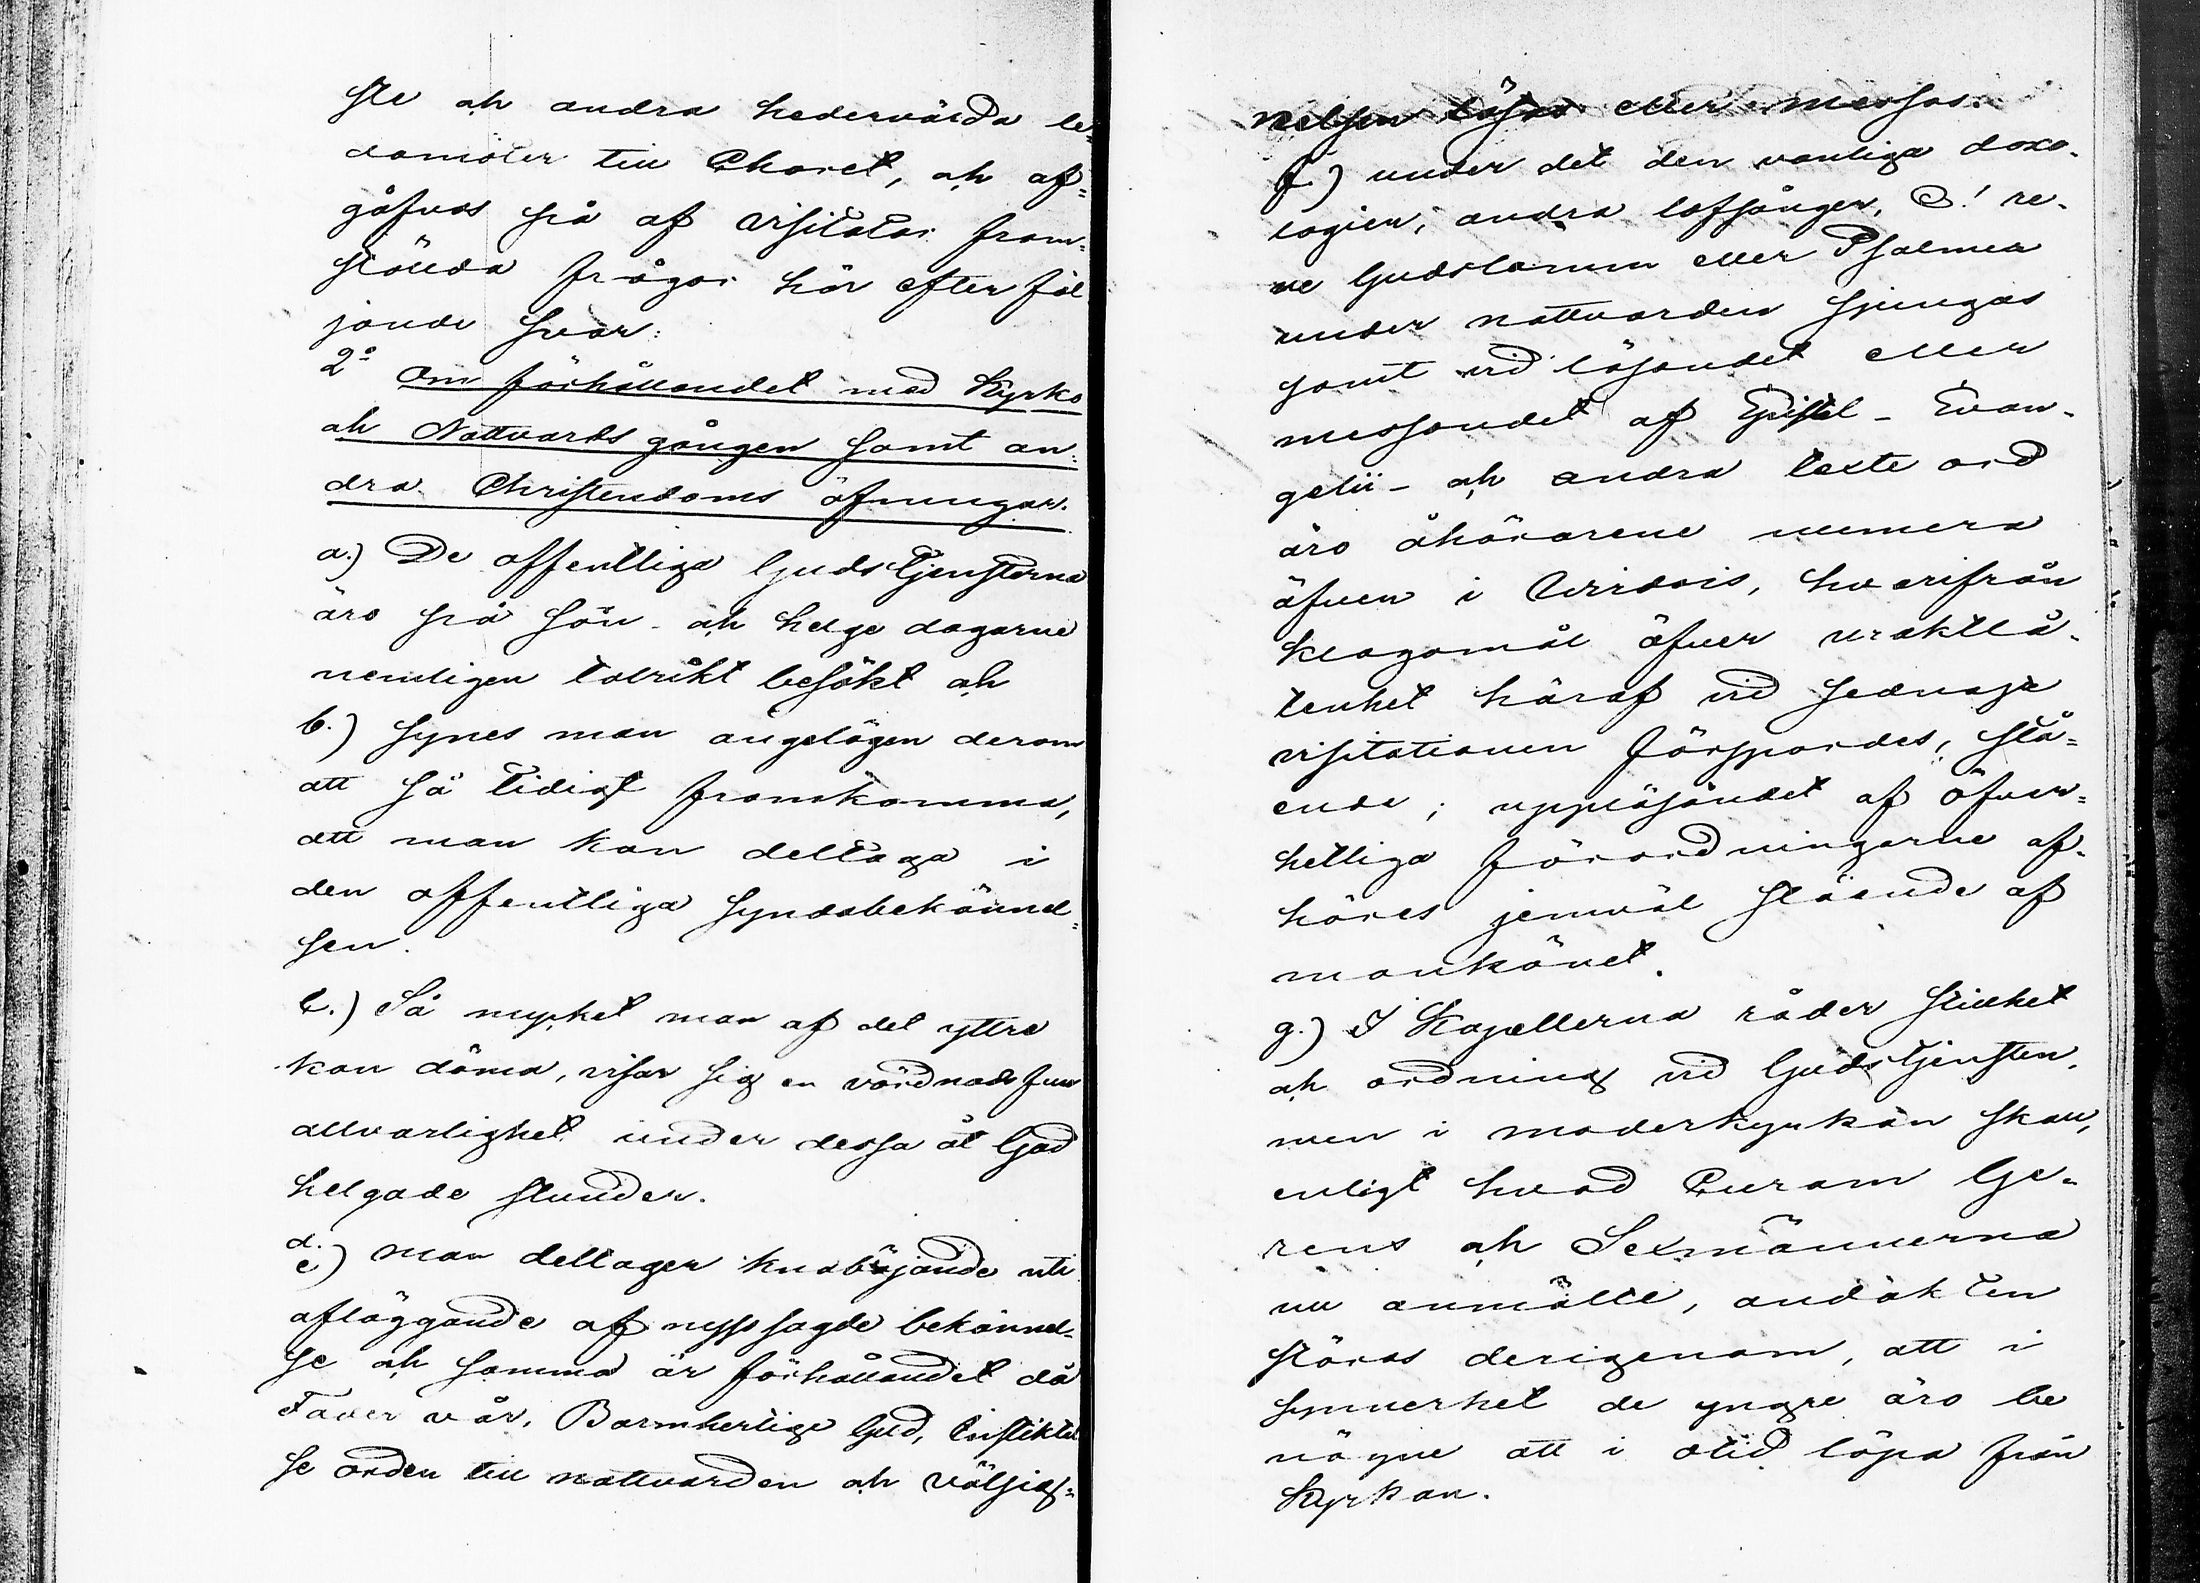 ste och andra hedervärda le-
damöter till Choret, och af-
gåfvos på af Visitator fram-
stälda frågor här efter föl
jande svar:
2o Om förhållandet med Kyrko
och Nattvards gången samt an-
dra Christendoms öfningar.
a.) De offentliga Gudstjensterna
äro på sön- och helge dagarne
nemligen talrikt besökt och
b.) synes man angelägen derom
att så tidigt framkomma,
att man kan deltaga i
den offentliga syndabekännel-
sen.
c.) Så mycket man af det yttre
kan döma, visar sig en vördnadsfull
allvarlighet under dessa åt Gud
helgade stunder.
d.
e) man deltager knäböjande uti
afläggande af nyss sagde bekännel-
se och samma är förhållandet då
Fader vår, Barmhertige Gud, Instiktel
se orden till nattvarden och välsig-
nelsen läses eller messas.
f.) under det den vanliga doxo-
logien, andra lofsånger, O! re-
ne Gudslamm eller Psalmer
under nattvarden sjungas
samt vid läsandet eller
messandet af Epistel- Evan-
gelii- och andra texte ord
äro åhörarene numera
äfven i Virdois, hvarifrån
klagomål öfver uraktlå-
tenhet häraf vid sednaste
visitationen försspordes, stå-
ende; uppläsandet af öfver-
hetliga förordningarne af-
höres jemväl stående af
mankönet.
g.) I Kapellerna råder stillhet
och ordning vid Gudstjensten,
men i moderkyrkan skall,
enligt hvad Curam Ge-
rens och Sexmännerna
nu anmälte, andakten
störas derigenom, att i
synnerhet de yngre äro be
nägne att i otid löpa från
Kyrkan.